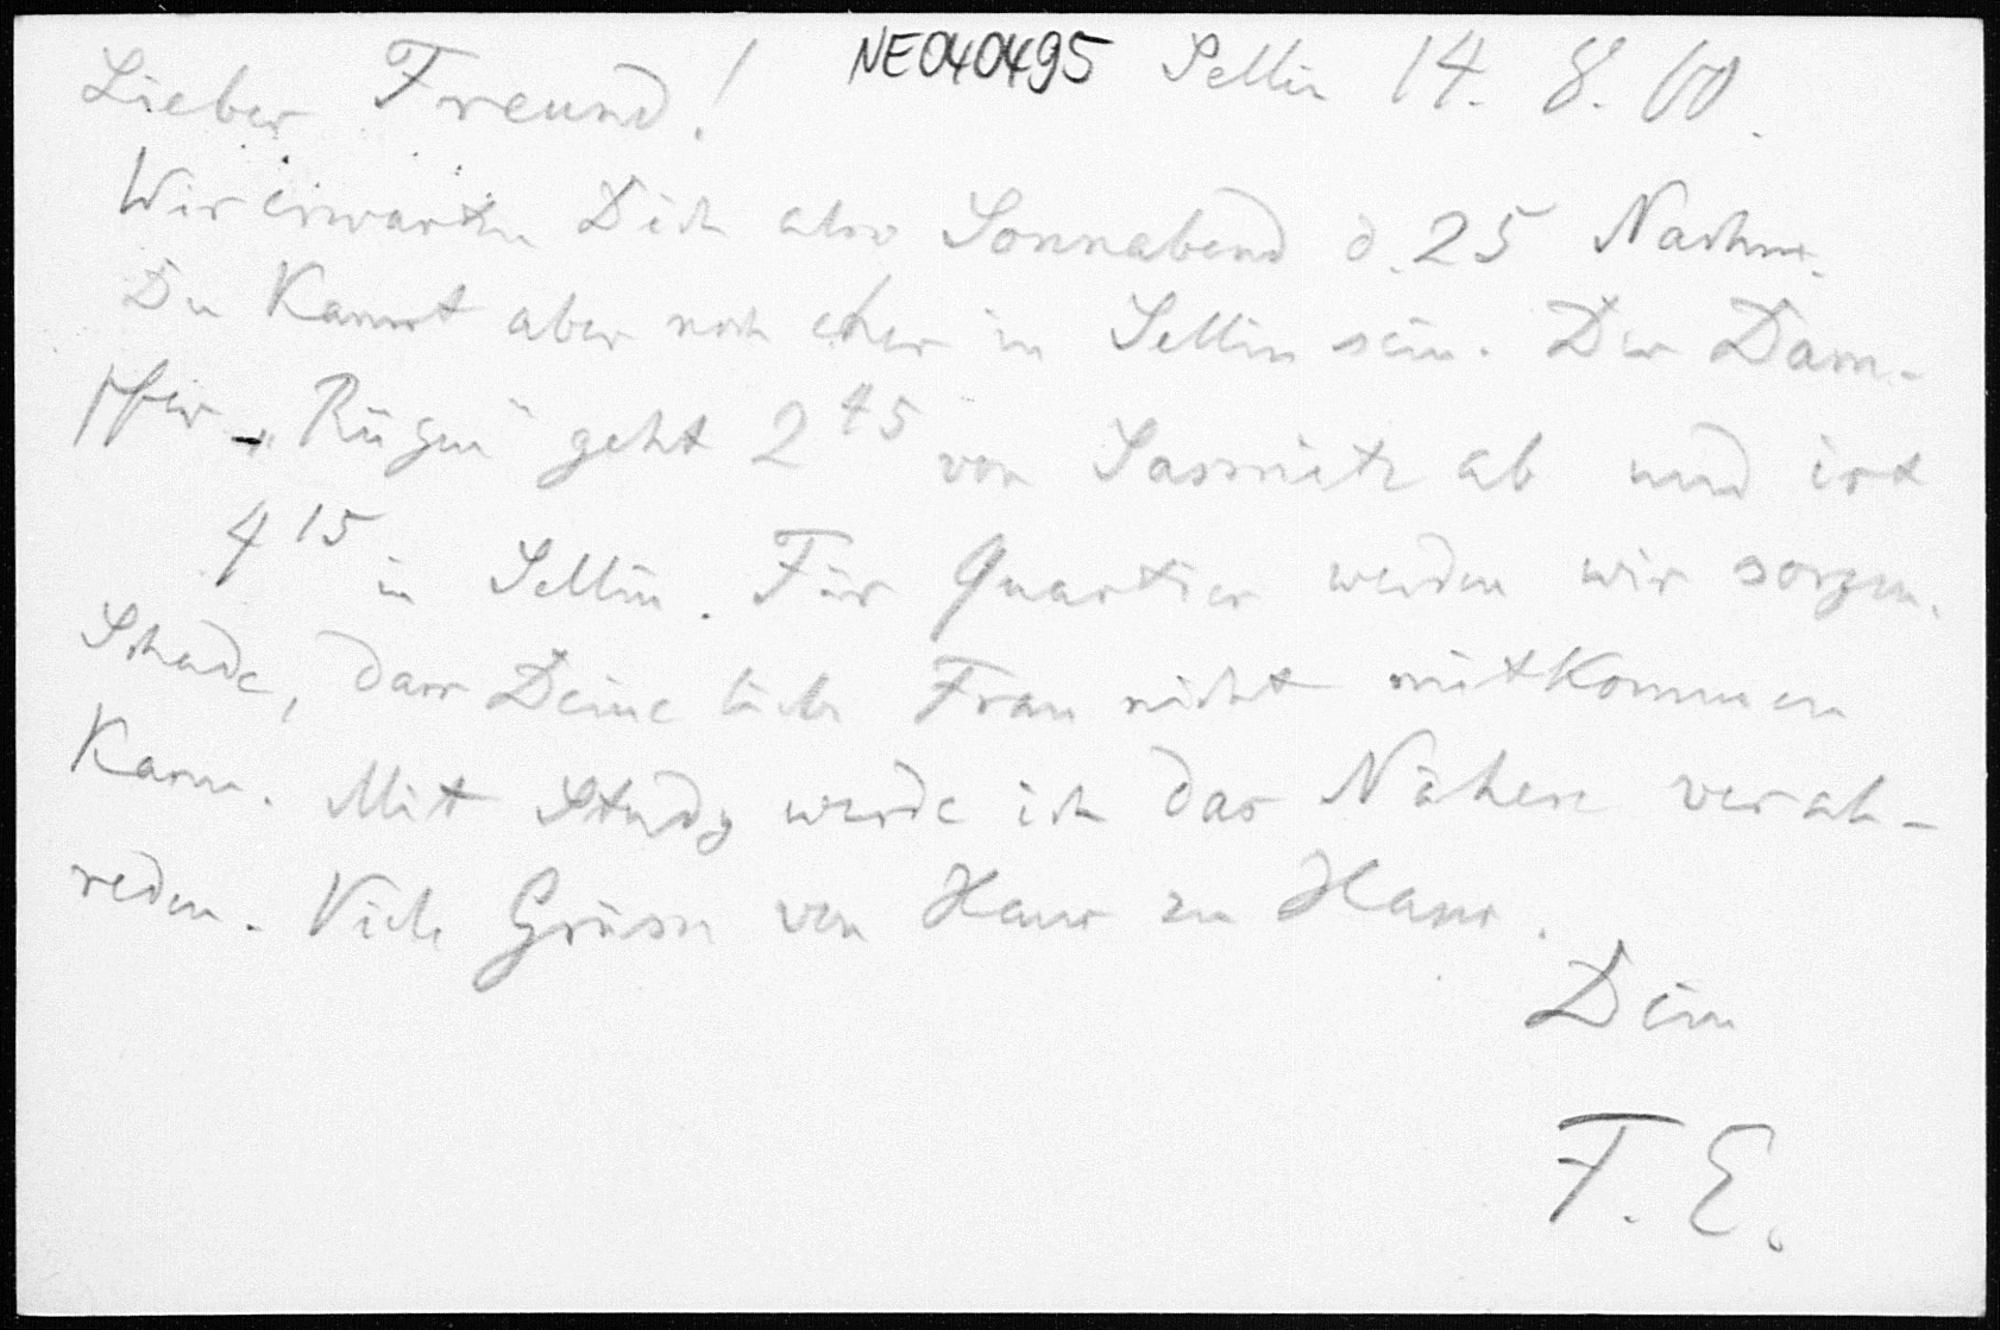 NE040495 Sellin 14. 8. 00.
Lieber Freund!
Wir erwarten Dich also Sonnabend d. 25 Nachm.
Du kannst aber noch eher in Sellin sein. Der Dam-
pfer „Rügen“ geht 2 45 von Sassnitz ab und ist
4 15 in Sellin. Für Quartier werden wir sorgen.
Schade, dass Deine liebe Frau nicht mitkommen
kann. Mit Study werde ich das Nähere verab-
reden. Viele Grüsse von Haus zu Haus.
Dein
F. E.